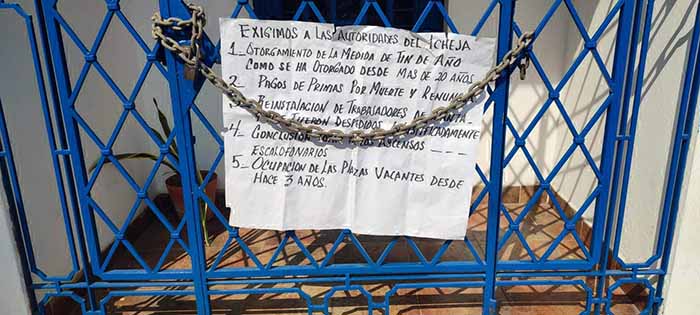 EXIGIMOS A LAS AUTORIDADES DEL ICHEJA
1_ OTORGAMIENTO DE LA MEDIDA DE FIN DE AÑO
COMO SE HA OTORGADO DESDE MAS DE 20 AÑOS
2_ PAGOS DE PRIMAS POR MUERTE Y
REINSTALACION DE TRABAJADORES DE
FUERON DESPIDOS
4_ CONCLUSION ASCENSOS _ _ _
ESCALAFONARIOS
5_ OCUPACION DE LAS PLAZAS VACANTES DESDE
HACE 3 AÑOS.